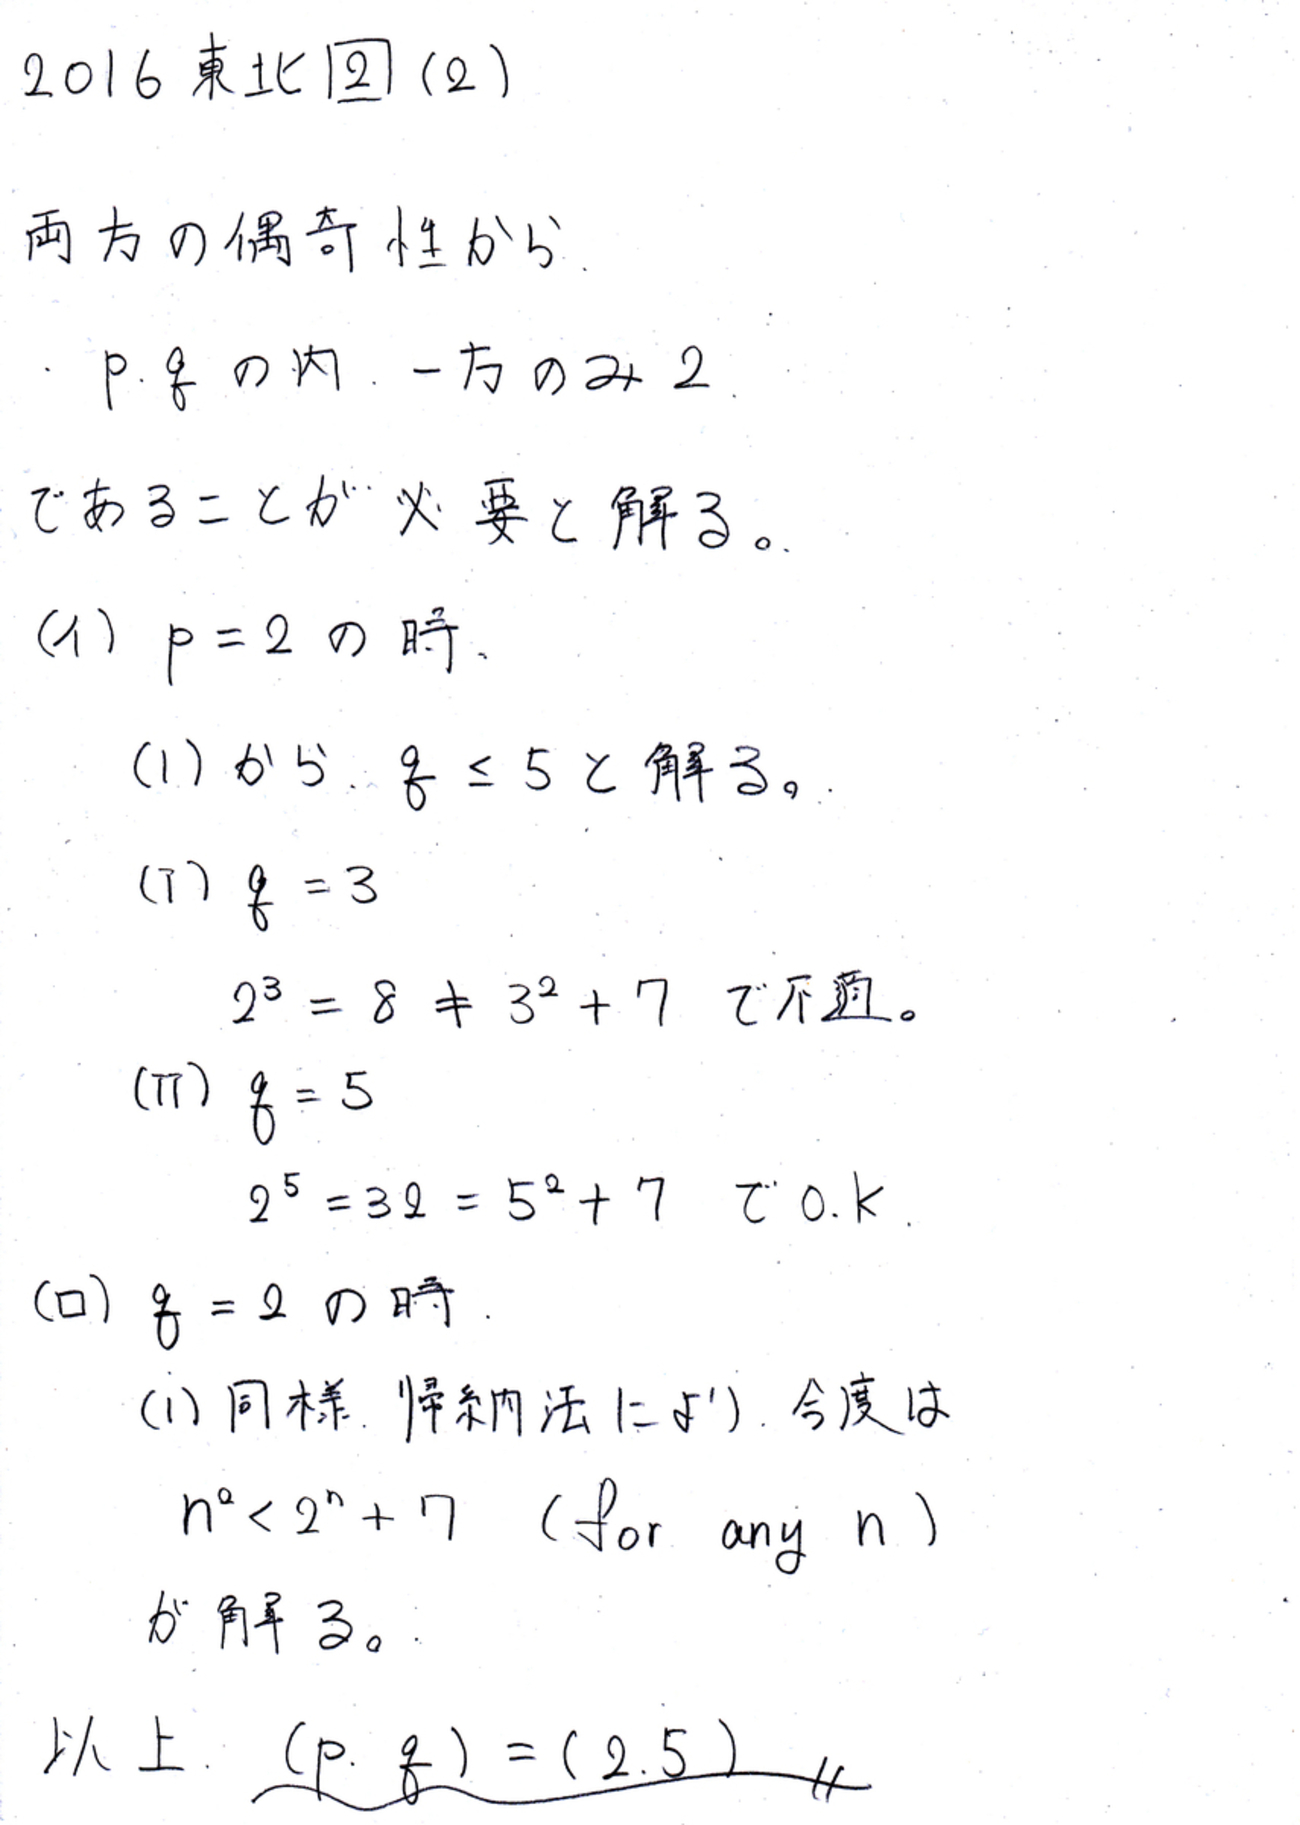 2016 東北 2 (2)
両方の偶奇性から.
p.qの内.一方のみ2.
であることが必要と解る。
(イ) p=2の時、
(1)から. q≦5と解る。
(i) q=3
2³=8≠3²+7 で不適。
(ii) q=5
2⁵=32=5²+7 でO.K.
(ロ) q=2の時.
(1)同様.帰納法により.今度は
n²<2ⁿ+7 (for any n)
が解る。
以上. (p.q)=(2.5)